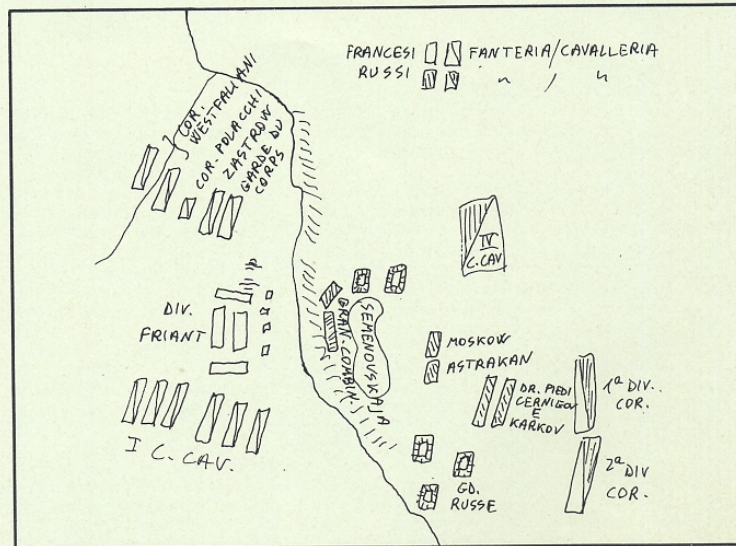 FRANCESI FANTERIA/CAVALLERIA
RUSSI " , "
COR.
WESTFALIANI
COR. POLACCHI
ZASTROW
GARDE DU
CORPS
IV
C.CAV
DIV.
FRIANT
GRAN. COMBIN.
SEMENOVSKAJA
MOSKOW
ASTRAKAN
DR. PIEDI
CERNIGOV
E
KARKOV
1ª DIV.
COR.
I C. CAV.
2ª DIV
COR.
GD.
RUSSE